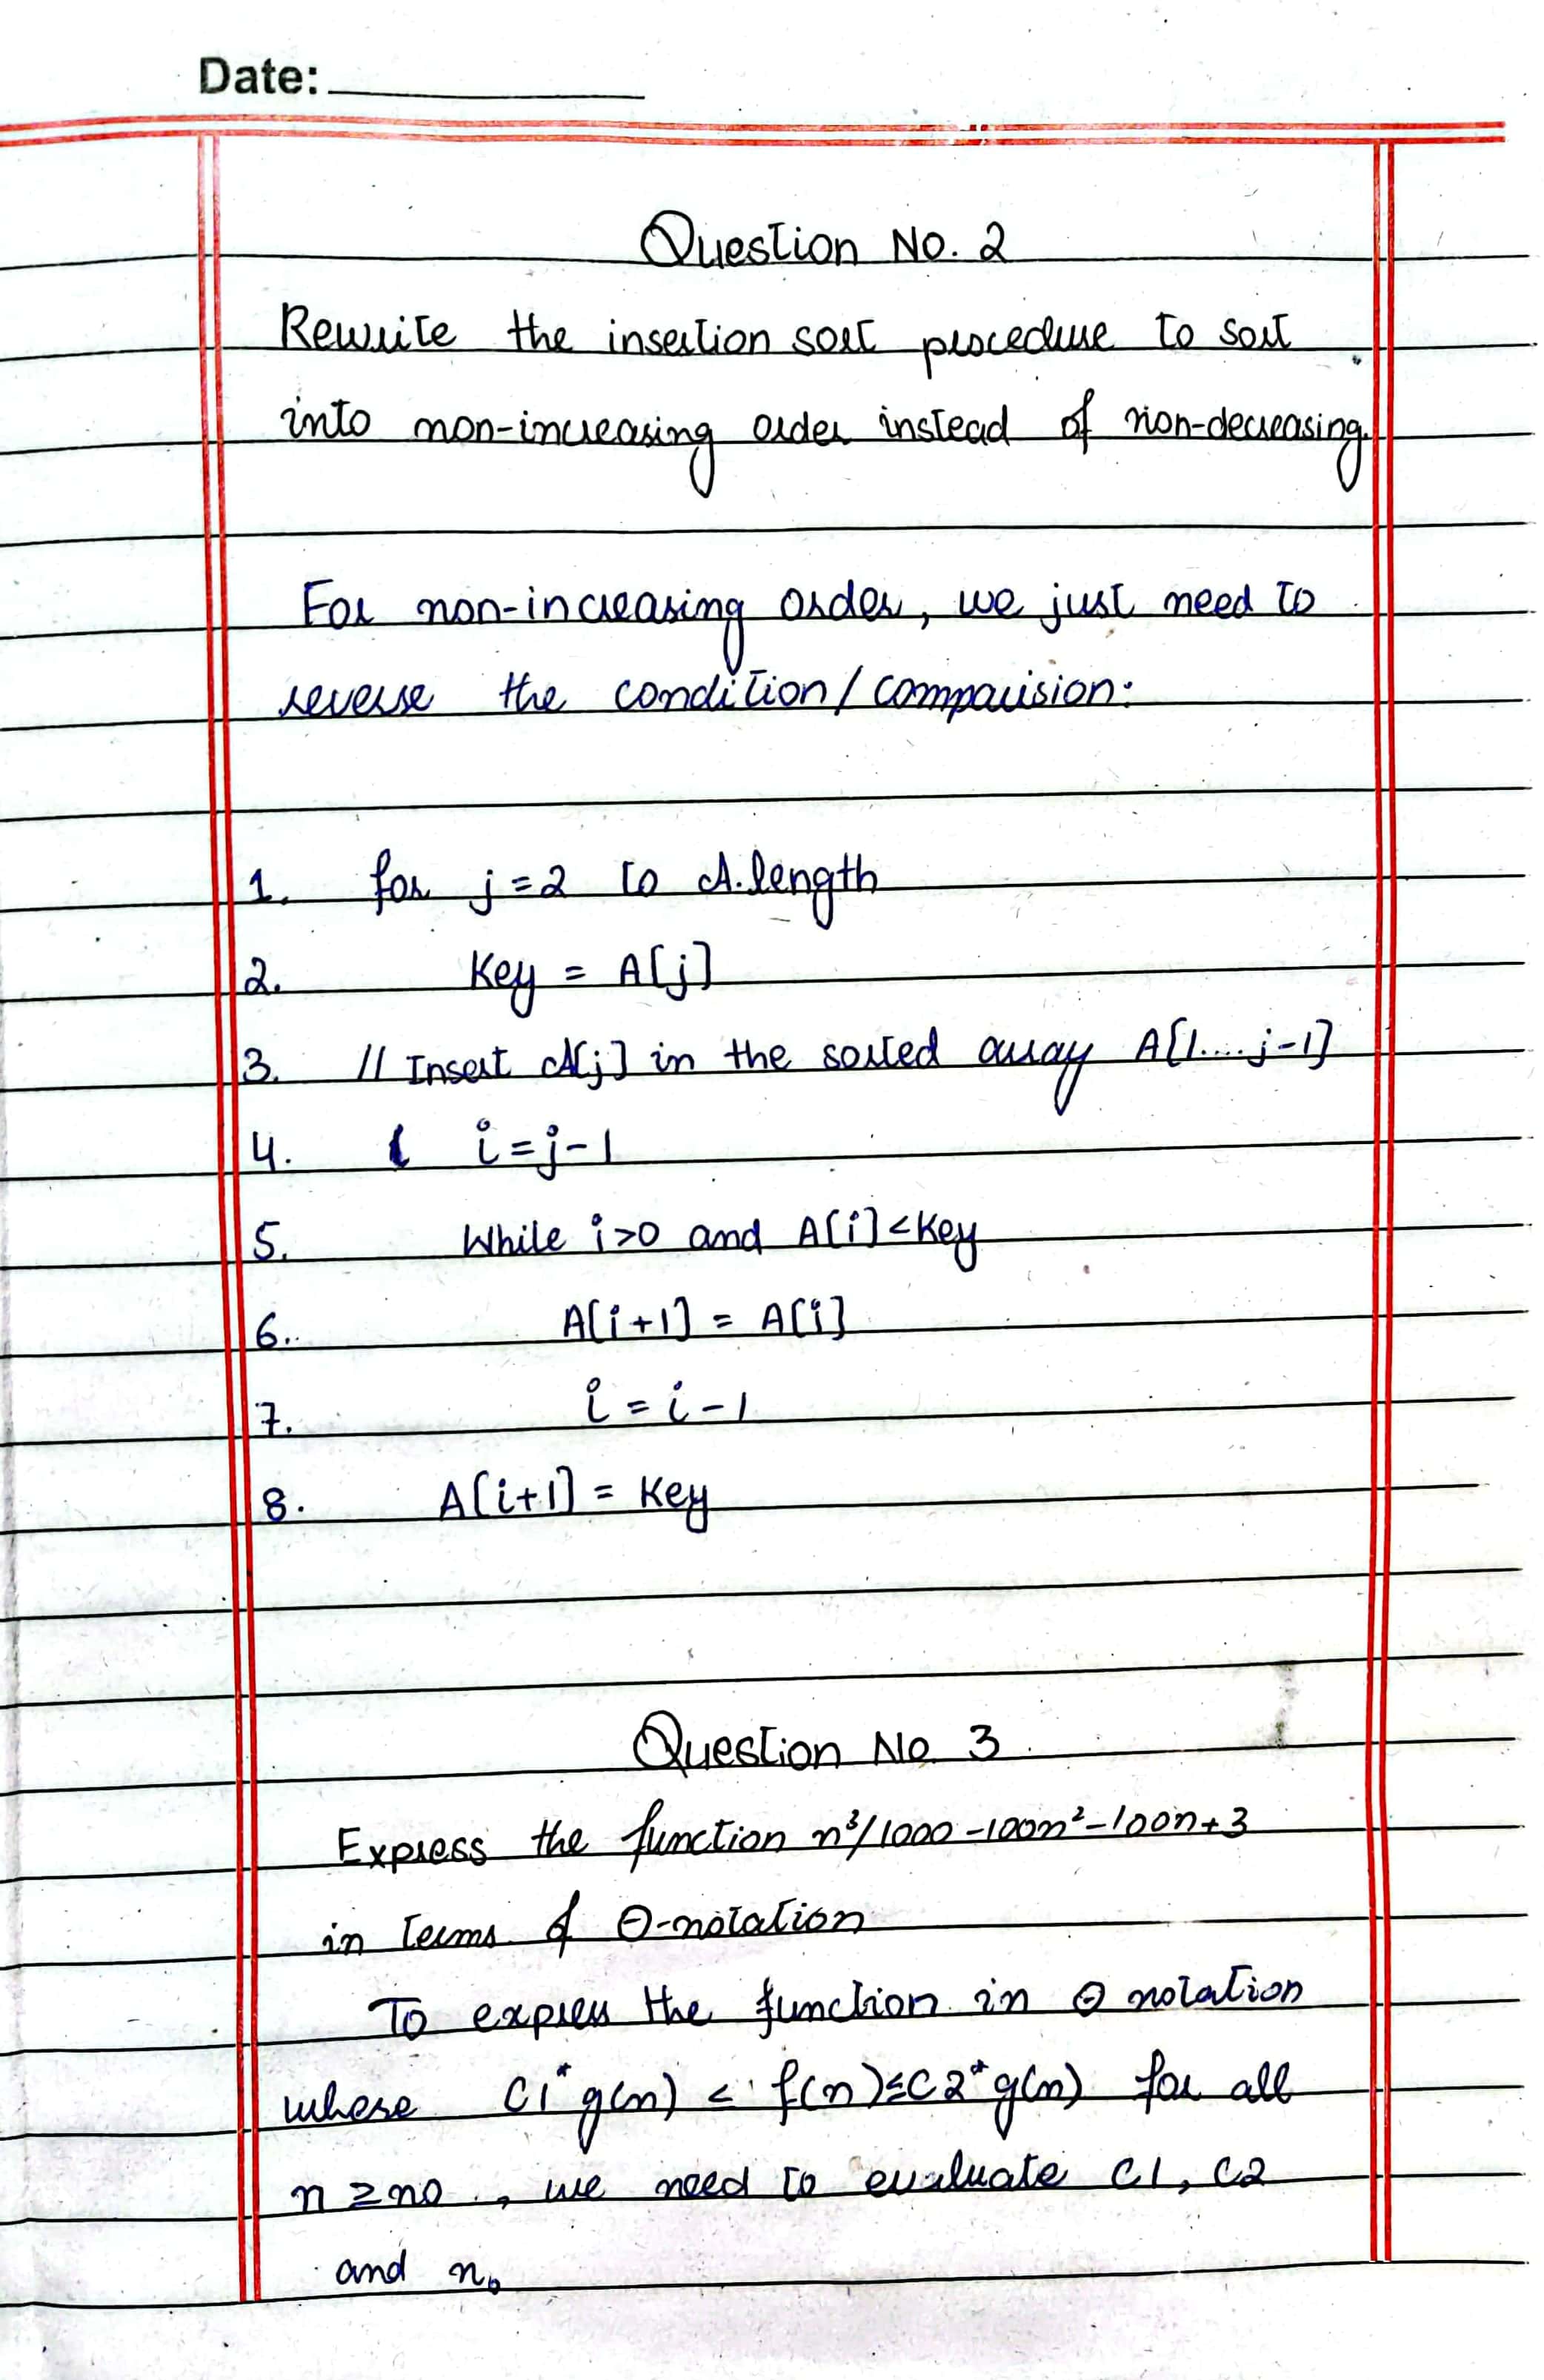 Date:
Question No. 2
Rewrite the insertion sort procedure to sort
into non-increasing order instead of non-decreasing.
For non-increasing order, we just need to
reverse the condition/comparision:
1. for j=2 to A.length
2. Key = A[j]
3. // Insert A[j] in the sorted array A[1....j-1]
4. i=j-1
5. While i>0 and A[i]<Key
6. A[i+1] = A[i]
7. i = i-1
8. A[i+1] = Key
Question No 3
Express the function n³/1000-100n²-100n+3
in terms of Θ-notation
To express the function in Θ notation
where C1*g(n) < f(n)≤C2*g(n) for all
n≥n0, we need to evaluate C1, C2
and n₀